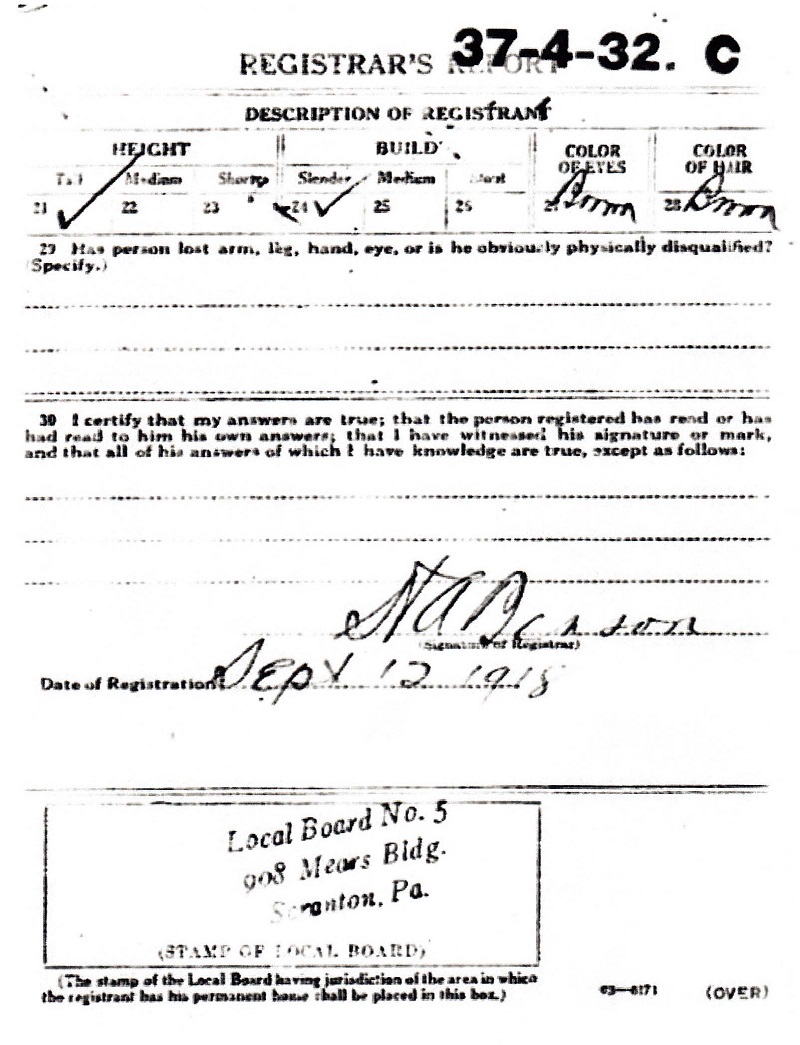 37-4-32. C
REGISTRAR'S REPORT
DESCRIPTION OF REGISTRANT
HEIGHT BUILD COLOR OF EYES COLOR OF HAIR
Tall Medium Short Slender Medium Stout
21 ✓ 22 23 24 ✓ 25 26 27 Brown 28 Brown
29 Has person lost arm, leg, hand, eye, or is he obviously physically disqualified?
(Specify.)
30 I certify that my answers are true; that the person registered has read or has
had read to him his own answers; that I have witnessed his signature or mark,
and that all of his answers of which I have knowledge are true, except as follows:
Benson
(Signature of Registrar)
Date of Registration Sept 12 1918
Local Board No. 5
908 Mears Bldg.
Scranton, Pa.
(STAMP OF LOCAL BOARD)
(The stamp of the Local Board having jurisdiction of the area in which
the registrant has his permanent home shall be placed in this box.)
63—6171 (OVER)